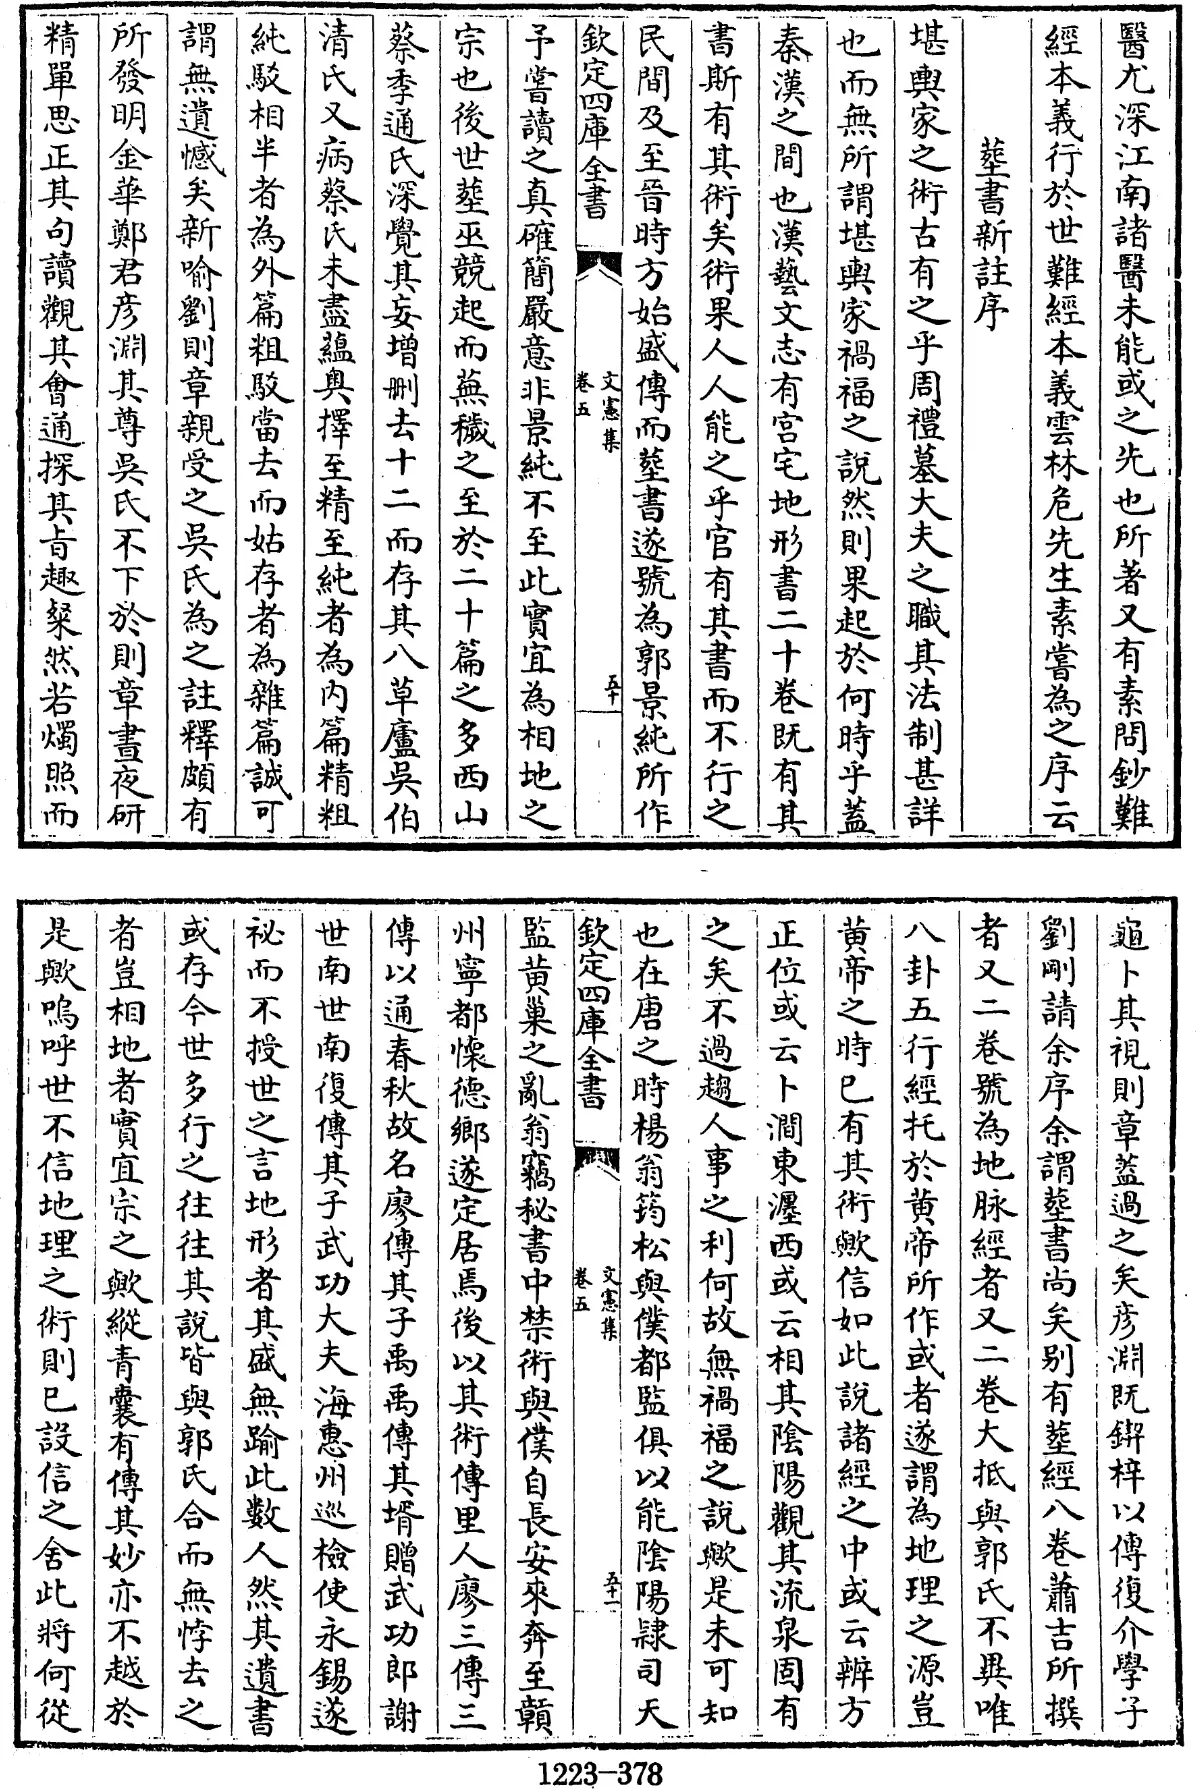 醫尤深江南諸醫未能或之先也所著又有素問鈔難
經本義行於世難經本義雲林危先生素嘗為之序云
葬書新註序
堪輿家之術古有之乎周禮墓大夫之職其法制甚詳
也而無所謂堪輿家禍福之說然則果起於何時乎蓋
秦漢之間也漢藝文志有宮宅地形書二十卷既有其
書斯有其術矣術果人人能之乎官有其書而不行之
民間及至晉時方始盛傳而葬書遂號為郭景純所作
欽定四庫全書
文憲集
卷五
五十
予嘗讀之真確簡嚴意非景純不至此實宜為相地之
宗也後世葬巫競起而蕪穢之至於二十篇之多西山
蔡季通氏深覺其妄增刪去十二而存其八草廬吳伯
清氏又病蔡氏未盡蘊奧擇至精至純者為內篇精粗
純駁相半者為外篇粗駁當去而姑存者為雜篇誠可
謂無遺憾矣新喻劉則章親受之吳氏為之註釋頗有
所發明金華鄭君彦淵其尊吳氏不下於則章晝夜研
精單思正其句讀觀其會通探其㫖趣粲然若燭照而
龜卜其視則章蓋過之矣彦淵既鍥梓以傳復介學子
劉剛請余序余謂葬書尚矣别有葬經八卷蕭吉所撰
者又二卷號為地脉經者又二卷大抵與郭氏不異唯
八卦五行經托於黄帝所作或者遂謂為地理之源豈
黄帝之時已有其術歟信如此說諸經之中或云辨方
正位或云卜澗東瀍西或云相其陰陽觀其流泉固有
之矣不過趨人事之利何故無禍福之說歟是未可知
也在唐之時楊翁筠松與僕都監俱以能陰陽隸司天
欽定四庫全書
文憲集
卷五
五十一
監黄巢之亂翁竊秘書中禁術與僕自長安來奔至贛
州寧都懷德鄉遂定居焉後以其術傳里人廖三傳三
傳以通春秋故名廖傳其子禹禹傳其壻贈武功郎謝
世南世南復傳其子武功大夫海惠州巡檢使永錫遂
祕而不授世之言地形者其盛無踰此數人然其遺書
或存今世多行之往往其說皆與郭氏合而無悖去之
者豈相地者實宜宗之歟縱青囊有傳其妙亦不越於
是歟嗚呼世不信地理之術則已設信之舍此將何從
1223-378